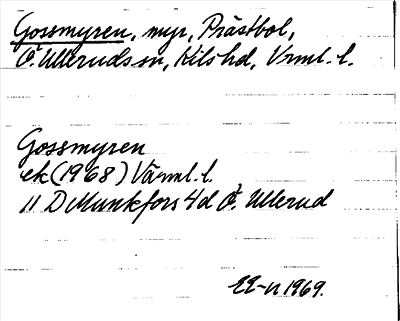 Gossmyren, myr, Prästbol,
Ö. Ulleruds sn, Kils hd, Vrml. l.
Gossmyren
ek (1968) Värml. l.
11 D Munkfors 4d Ö. Ullerud
1969.